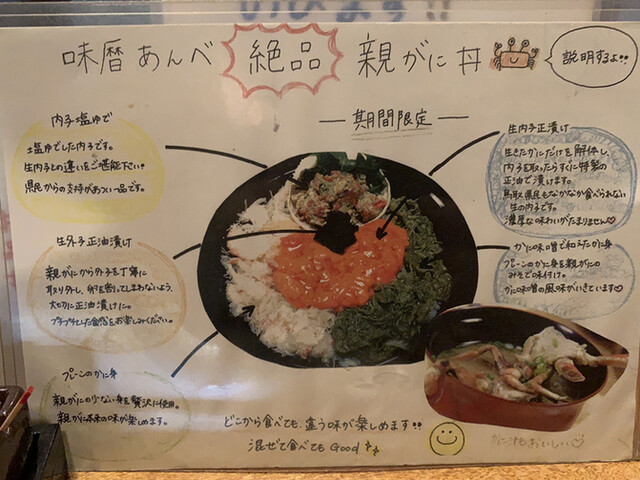 味暦あんべ 絶品 親がに丼
説明するよ!!
期間限定
内子塩ゆで
塩ゆでした内子です。
生内子との違いをご堪能下さい!
県民からの支持があつい一品です。
生外子正油漬け
親がにから外子を丁寧に
取り外し、卵を割ってしまわないよう、
大切に正油漬けに。
プチプチした食感をお楽しみください。
プレーンのかに身
親がにの少ない身を贅沢に使用。
親がに本来の味が楽しめます。
生内子正油漬け
生きたかにだけを解体し、
内子を取ったらすぐに特製の
正油で漬けます。
鳥取県民もなかなか食べられない
生の内子です。
濃厚な味わいがたまりません♡
かに味噌で和えたかに身
プレーンのかに身を親がにの
みそで味付け。
かに味噌の風味がいきています♡
どこから食べても、違う味が楽しめます!!
混ぜて食べてもGood
かに汁もおいしい♡